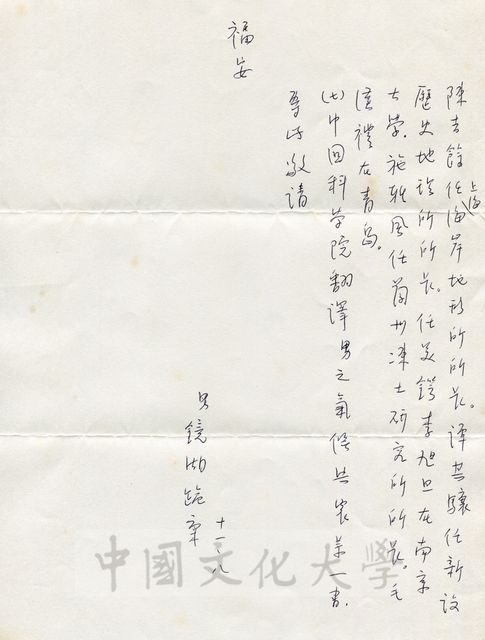 陳吉餘任上海海岸地形所所長。譚其驤任新設
歷史地理所所長。任美鍔李旭旦在南京
大學。施雅風任蘭州凍土研究所所長。毛
漢禮在青島。
(七)中國科學院翻譯男之氣候與農業一書。
專此敬請
福安
男鏡湖跪稟
十一、八
中國文化大學